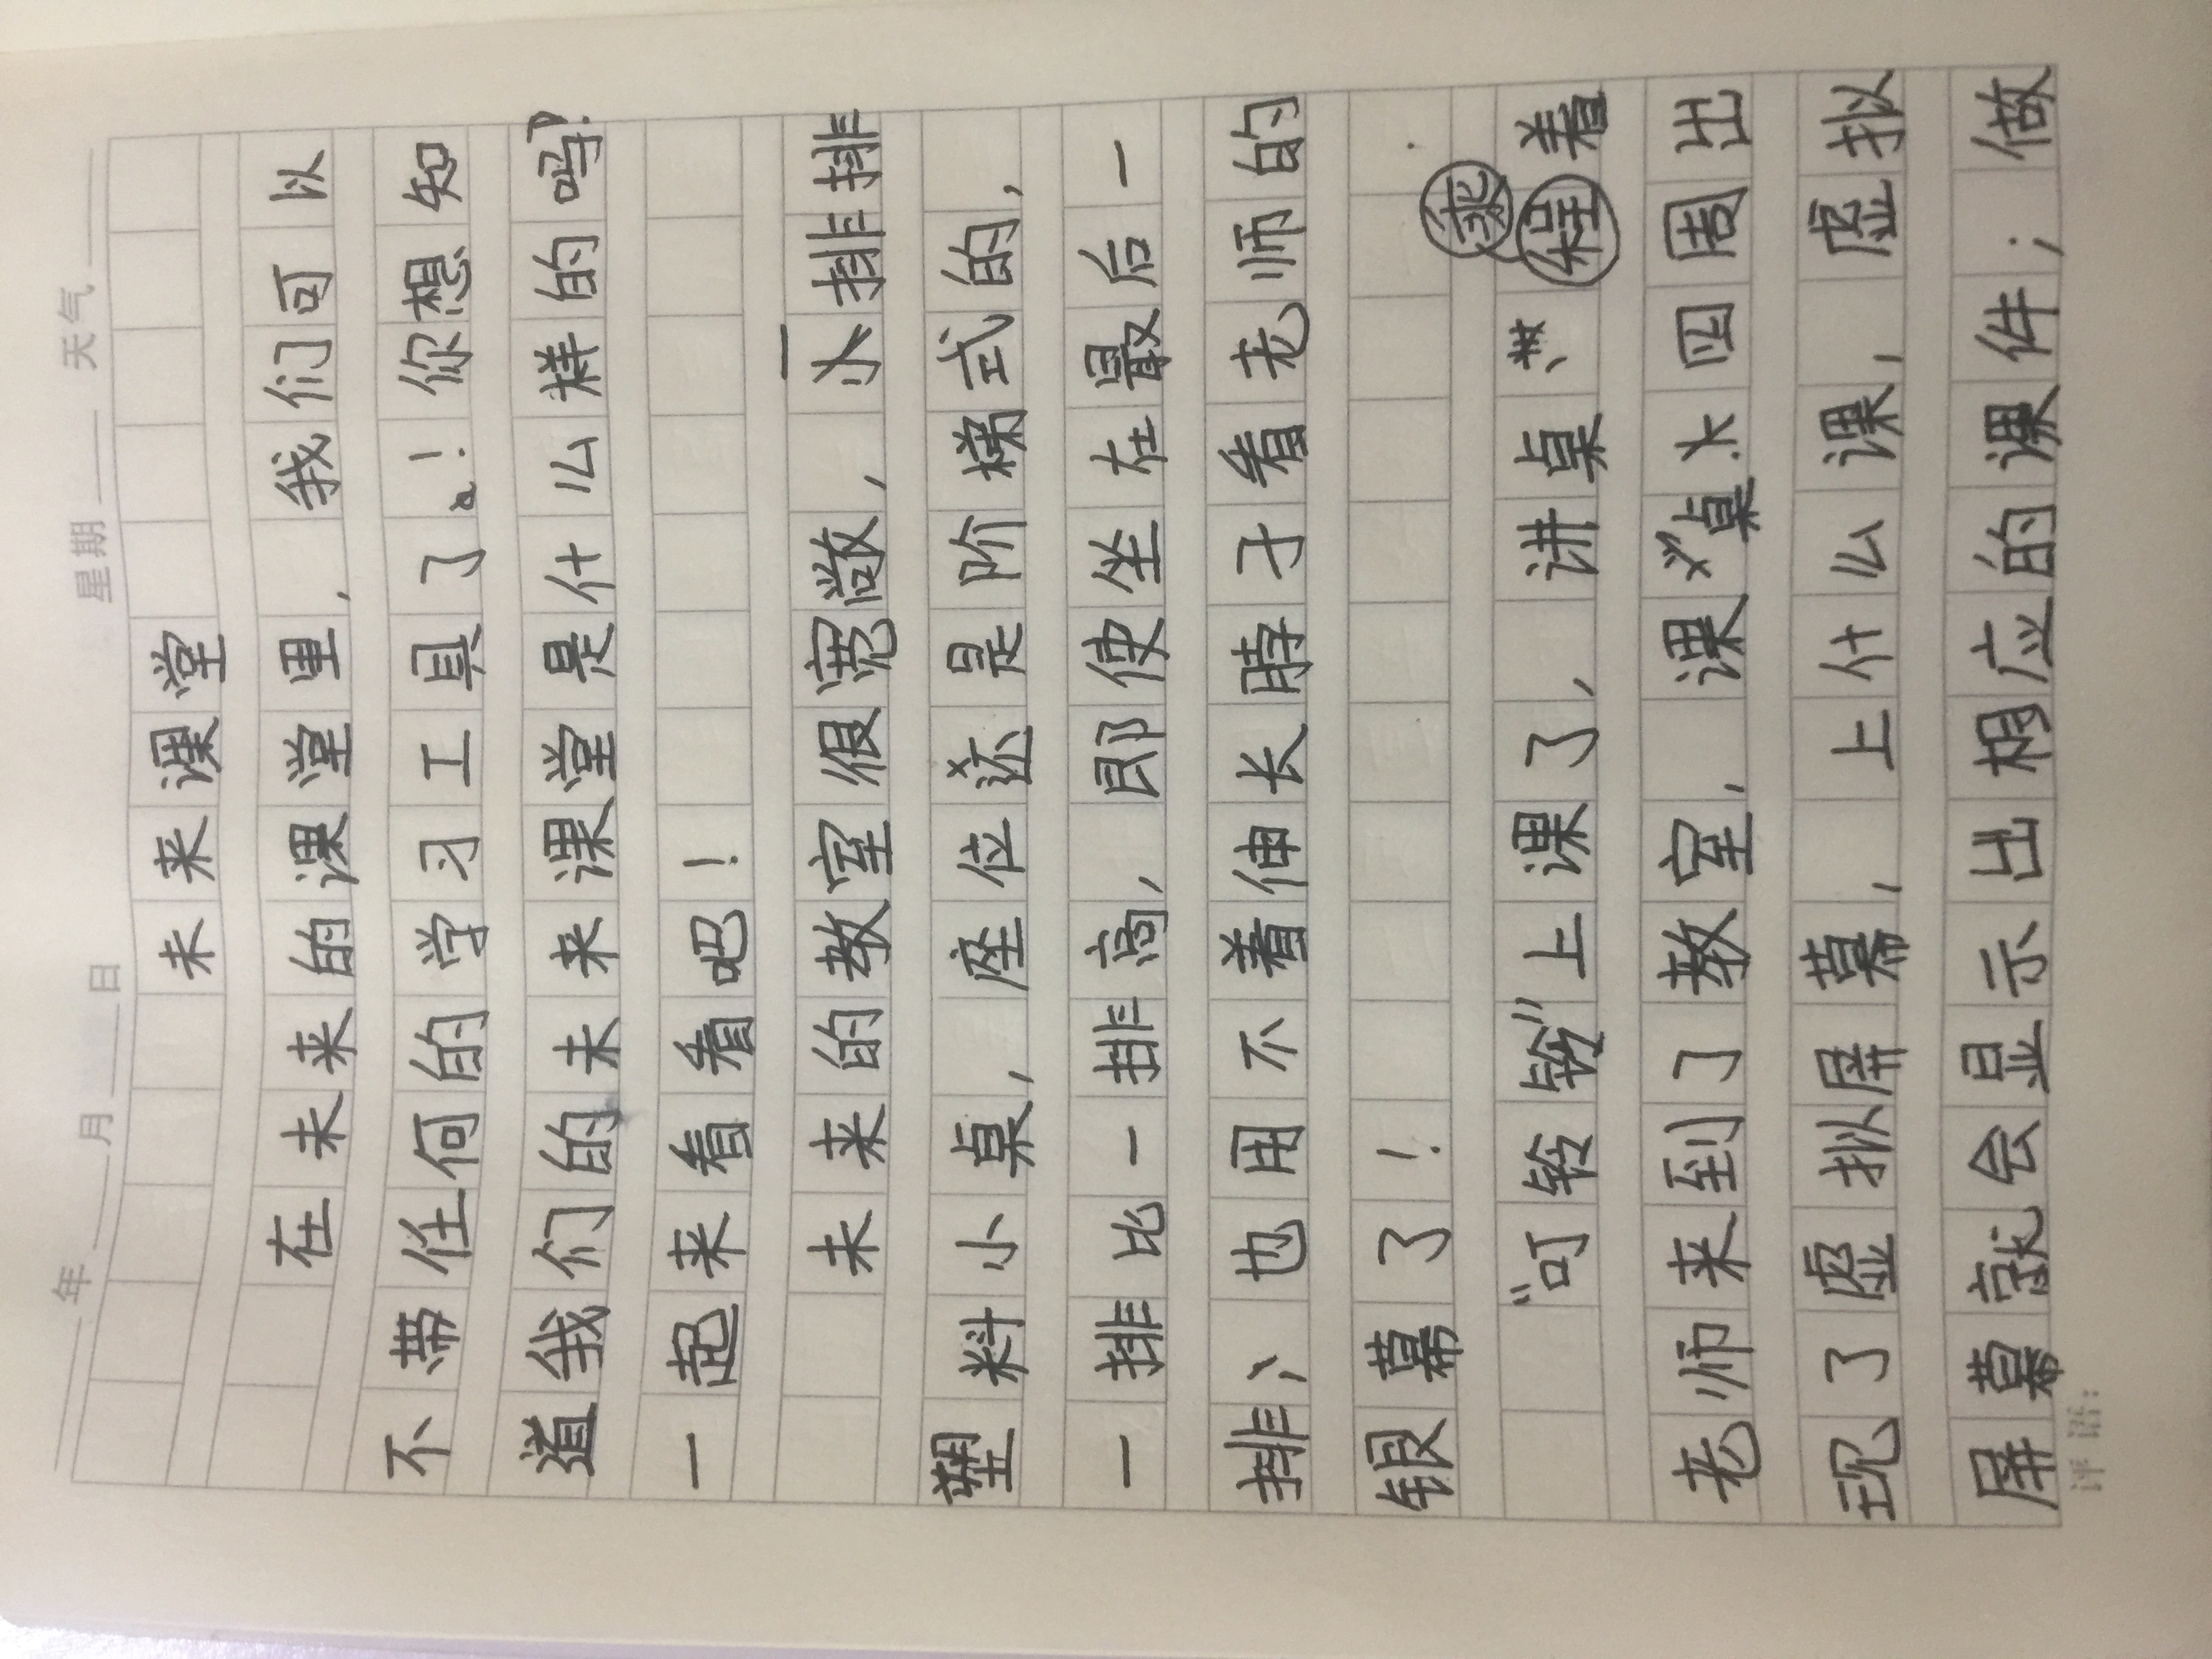 年 月 日 星期 天气
未来课堂
在未来的课堂里，我们可以
不带任何的学习工具了。！你想知
道我们的未来课堂是什么样的吗？
一起来看看吧！
未来的教室很宽敞，一排排
塑料小桌，座位还是阶梯式的，
一排比一排高，即使坐在最后一
排，也用不着伸长脖子看老师的
银幕了！
乘
“叮铃铃”上课了，讲桌着
老师来到了教室，课桌四周出
现了虚拟屏幕，上什么课，虚拟
屏幕就会显示出相应的课件；做
评语：